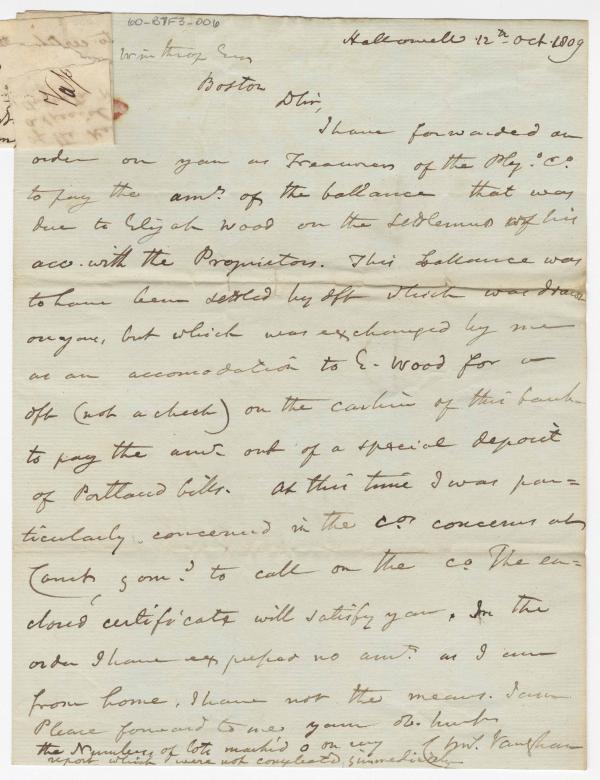 60-B7F3-006
Hallowell 12th Oct 1809
Winthrop Esq
Boston
DSir,
I have forwarded an
order on you as Treasurer of the Ply.o Co.
to pay the amt. of the ballance that was
due to Elijah Wood on the settlement of his
acc. with the Proprietors. This ballance was
to have been settled by dft which was drawn
on you, but which was exchanged by me
as an accomodation to E. Wood for a
dft (not a check) on the cashier of this bank
to pay the amt. out of a special deposit
of Portland bills. At this time I was par=
ticularly concerned in the Cos concerns at
to call on the Co. The en-
closed certificate will satisfy you. In the
order I have expressed no amt. as I am
from home, I have not the means. I am
Please forward to me your ob. hubt
the Numbers of lots marked o on my C Vaughan
report which were not compleated, immediately